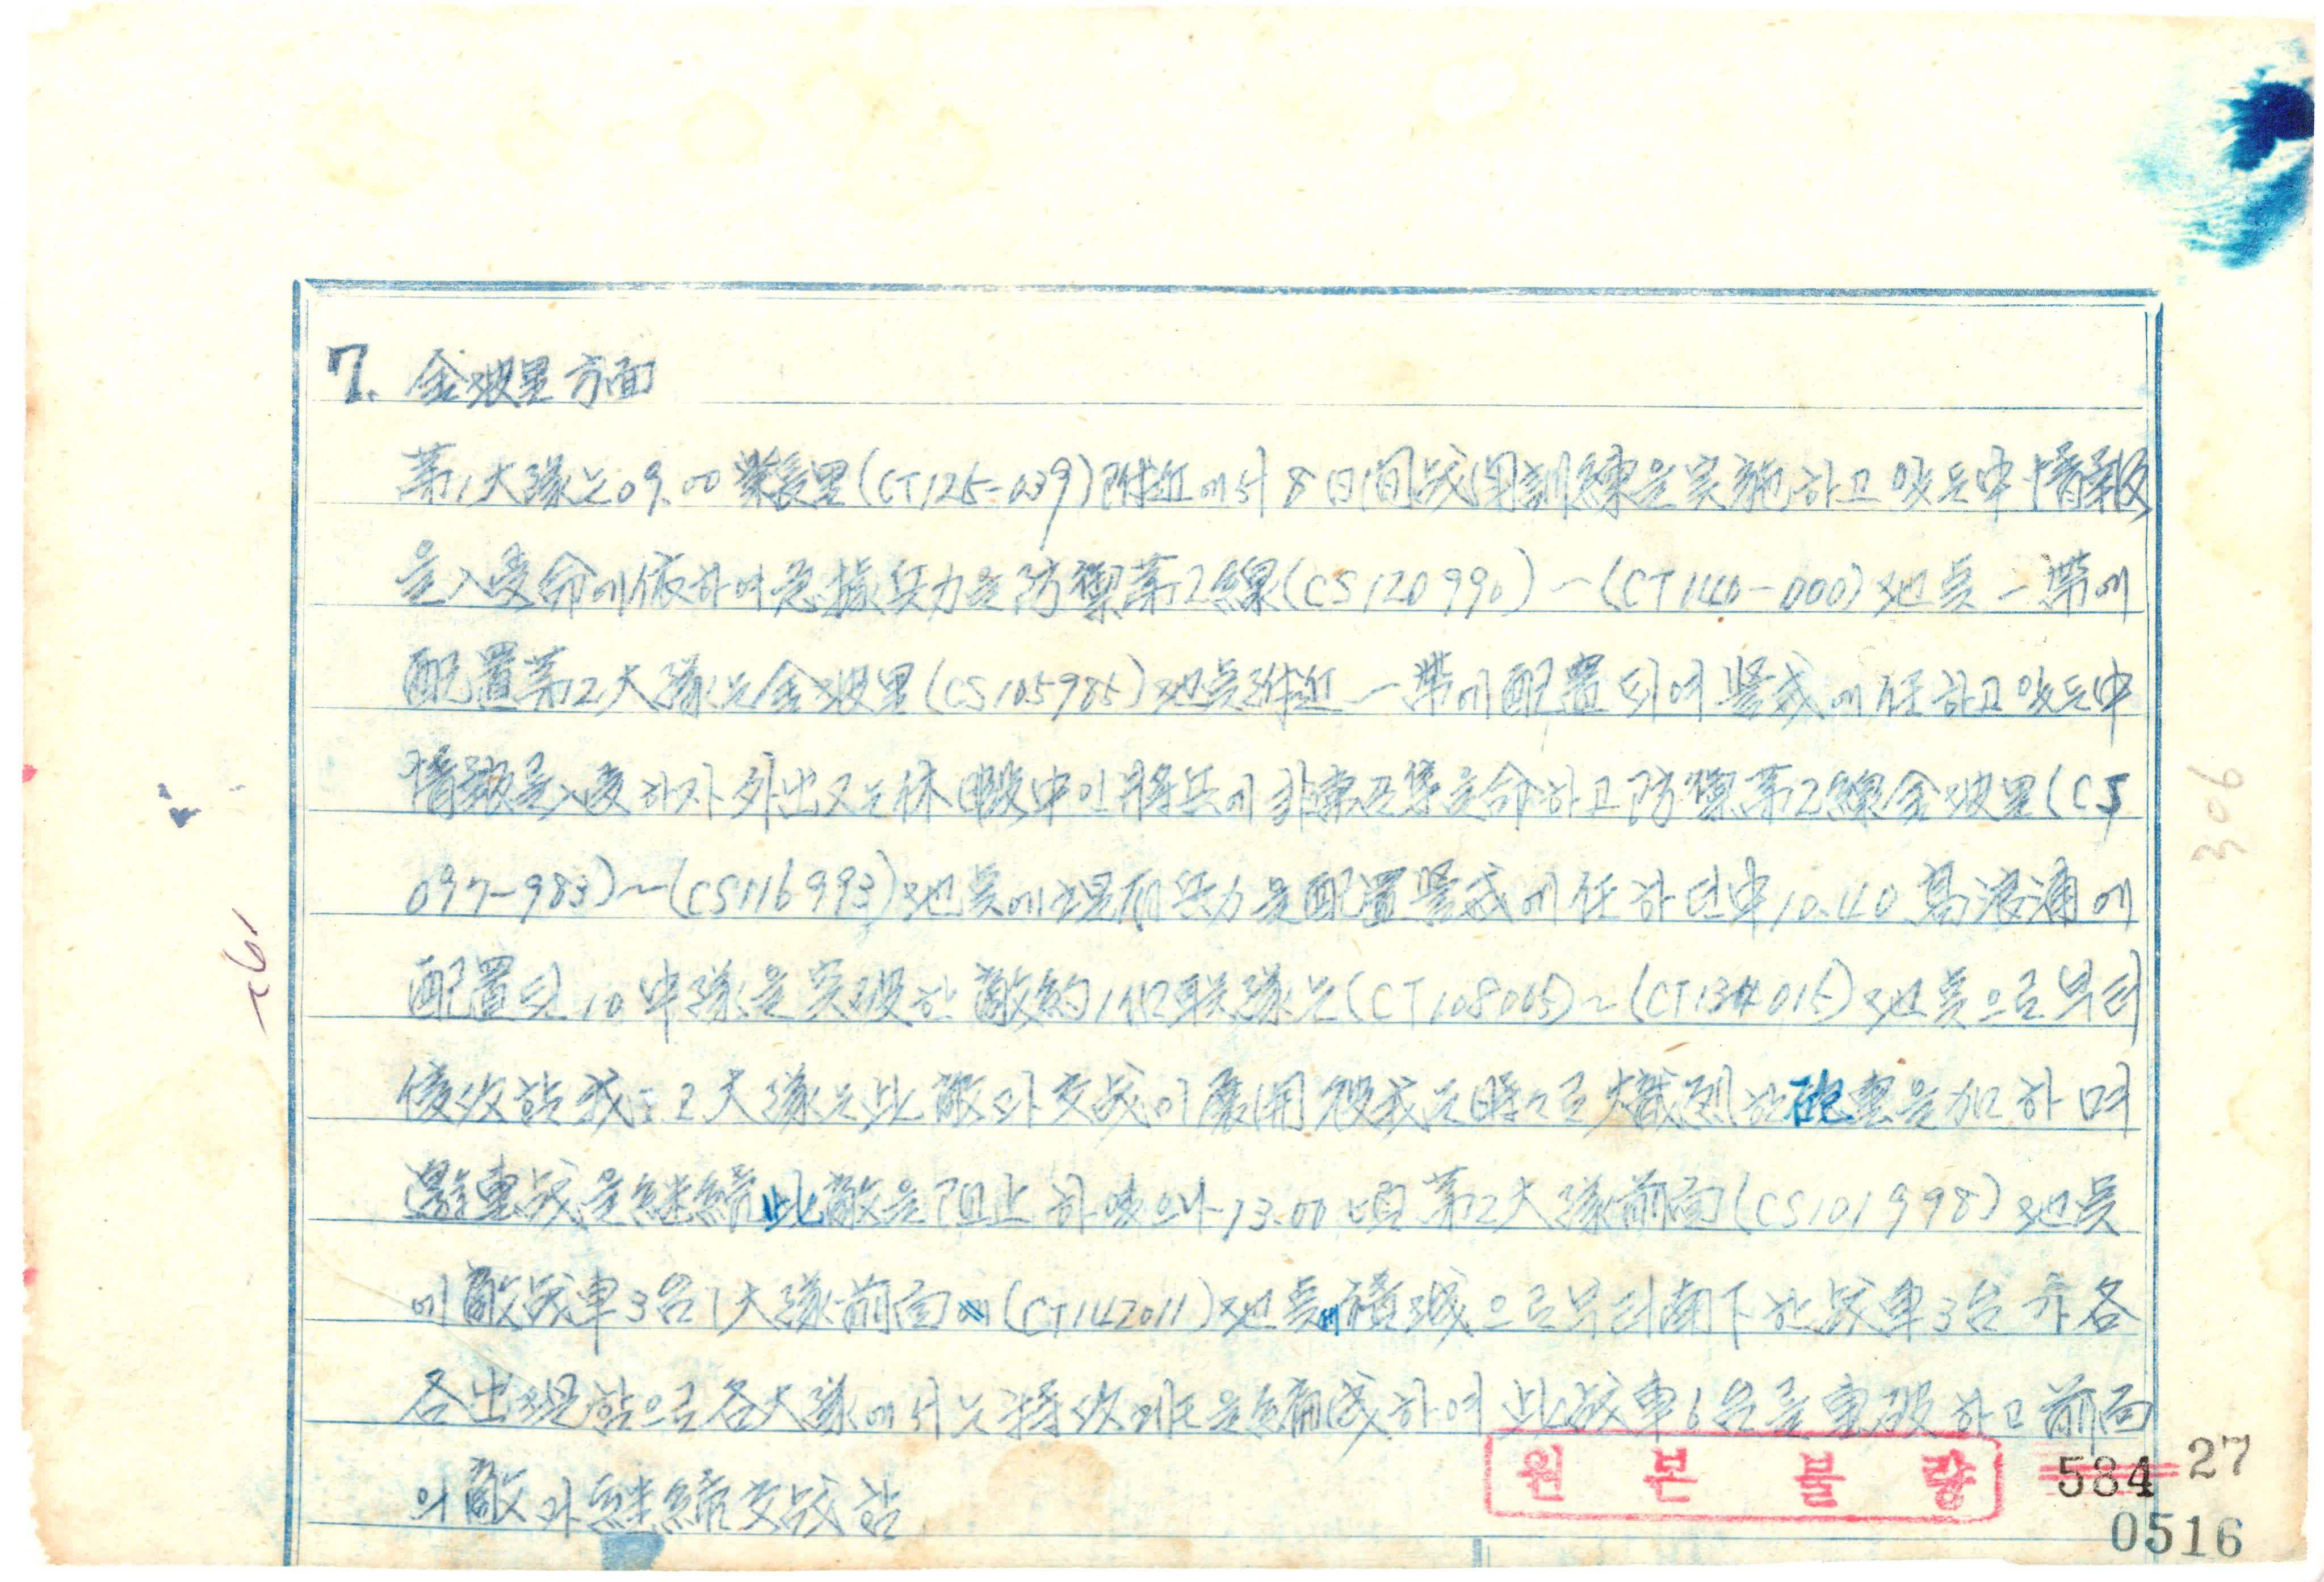 7. 金坡里 方面
第1大隊는 09.00 (CT125-039)附近에서 8日間 战闘訓練을 実施하고 있는 中 情報
을 入受 命에 依하여 急據 兵力을 防禦 第2線(CS120990)~(CT140-000)地点 一帶에
配置 第2大隊는 金坡里(CS105985)地点附近 一帶에 配置되여 警戒에 任하고 있는 中
情報를 入受하자 外出 又는 休暇中인 將兵에 非常召集을 命하고 防禦 第2線 金坡里(CS
097-983)~(CS116993)地点에 現有兵力을 配置 警戒에 任하던 中 10.40 高浪浦에
配置된 10中隊을 突破한 敵 約 1個聯隊는 (CT108005)~(CT134015)地点으로부터
侵攻함 我 2大隊는 此 敵과 交战이 展開 彼我는 時時로 熾烈한 砲擊을 加하며
激战을 継続 此 敵을 阻止하였으나 13.00頃 第2大隊 前面(CS101998)地点
에 敵战車 3台 1大隊 前面 (CT142011)地点에 積城으로부터 南下한 战車 3台가 各
各 出現함으로 各 大隊에서는 特攻隊을 編成하여 此 战車 6台를 擊破하고 前面
의 敵과 継続 交战함
원본불량
584 27
0516
306